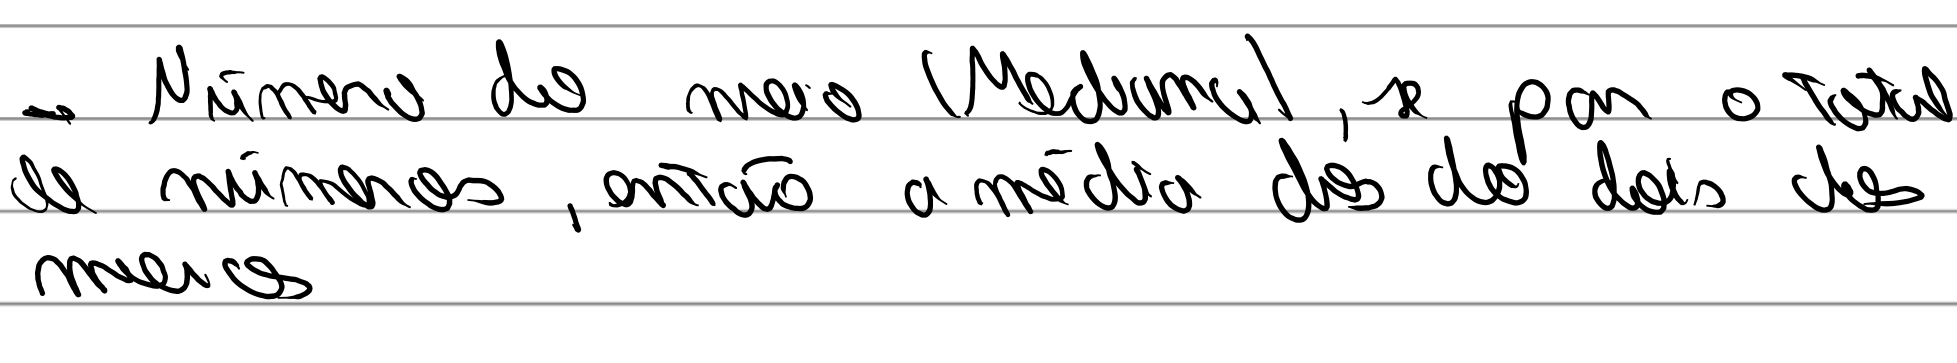 - Número do meio (Mediana), se par o total
de números, então a média dos do dois dos
meios